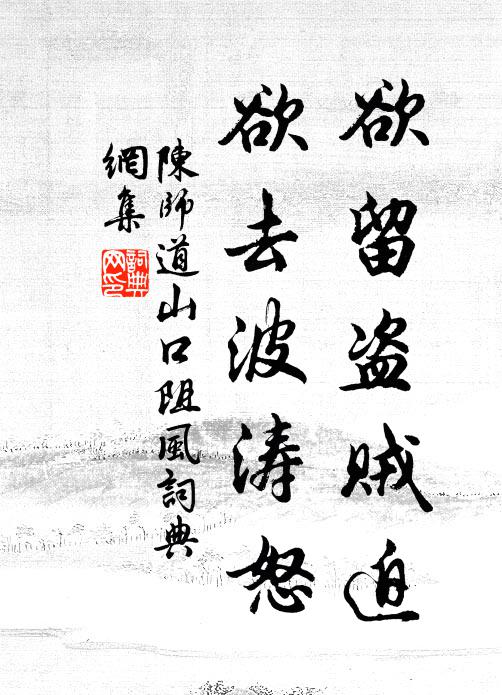 欲留盗贼迫
欲去波涛怒
陳師道山口阻風詞典
網集
詞典
网印